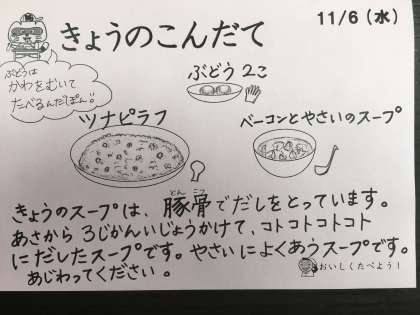 きょうのこんだて
11/6(水)
ぶどうは
かわをむいて
たべるんだぽん!!
ぶどう 2こ
ツナピラフ
ベーコンとやさいのスープ
きょうのスープは、豚骨でだしをとっています。
とん こつ
あさから 3じかんいじょうかけて、コトコトコトコト
にだしたスープです。やさいによくあうスープです。
あじわってください。
おいしくたべよう!